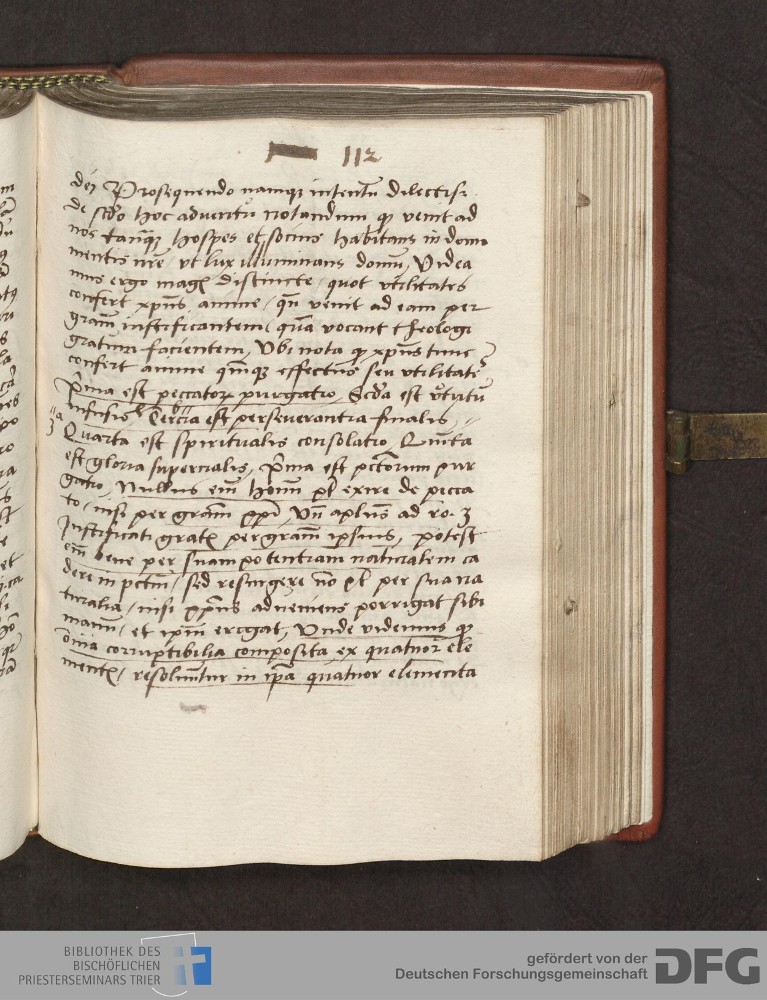 112
dei Prosequendo namqz intentū dilectissi
de scđo hoc aduentu notandum qꝫ venit ad
nos tanqꝫ hospes et socius habitans in domo
mentis nr̄e / vt lux illuminans domū, Videa
mus ergo magꝭ distincte / quot vtilitates
confert xp̄us anime / qn̄ venit ad eam per
gr̄am iustificantem / quā vocant theologi
gratum facientem, Vbi nota qꝫ xp̄us tunc
confert anime quīqꝫ effectus seu vtilitates
Prīa est peccatorꝝ purgatio, Scđa est v̄tutū
infusio, Tercia est perseuerantia finalis,
Quarta est spiritualis consolatio, Quīta
est gloria supernalis, Prīa est pctōrum pur
gatio, Nullus em̄ homī pt̄ exire de pecca
to / nisi per gr̄am xp̄i, Vn̄ aplūs ad ro. 3
Justificati gratꝭ per gr̄am ipsius, potest
em̄ bene per suam potentiam naturalem ca
dere in pctm̄ / sed resurgere nō pt̄ per sua na
turalia / nisi xp̄us adueniens porrigat sibi
manū / et ip̄m erigat, Vnde videmus qꝫ
oīa corruptibilia composita ex quatuor ele
mentꝭ / resoluūtur in ip̄a quatuor elementa
BIBLIOTHEK DES
BISCHÖFLICHEN
PRIESTERSEMINARS TRIER
gefördert von der
Deutschen Forschungsgemeinschaft
DFG